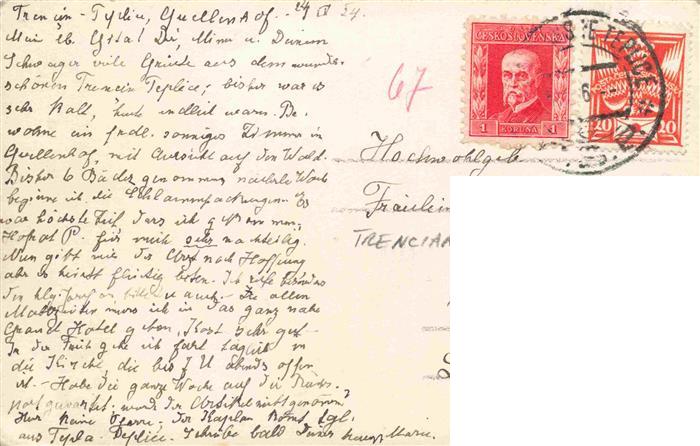 Trencin-Teplic, Quellenhof. 24 IV 24.
Mein lb. Etta! Dir, Mina u. Deinem
Schwager viele Grüsse aus dem wunder-
schönen Trencin Teplice; bisher war es
sehr kalt, heute endlich warm. Be-
wohne ein fredl. sonniges Zimmer im
Quellenhof, mit Aussicht auf den Wald.
Bisher 6 Bäder genommen nächste Woche
beginne ich die Schlammpackungen. Es
war höchste Zeit, dass ich
Hofrat P. für mich sehr nachteilig.
Nun gibt mir der Arzt noch Hoffnung
aber es heisst fleissig beten. Ich
den hlg. Josef an bitte u auch. Zu allen
Mahlzeiten muss ich in das ganz nahe
Grand Hotel gehen, Kost sehr gut
In der Früh gehe ich fast täglich in
die Kirche, die bis 7 U abends offen
ist. - Habe die ganze Woche auf die
post gewartet, wurde der Artikel nicht genommen?
Hier keine Pfarre. Der Kaplan kommt tgl.
aus Tepla. Teplice. Schreibe bald Deiner Marie.
67
ČESKOSLOVENSKÁ
1 KORUNA 1
20 20
TEPLICE
Hochwohlgeb
Fräulein
TRENCIAN